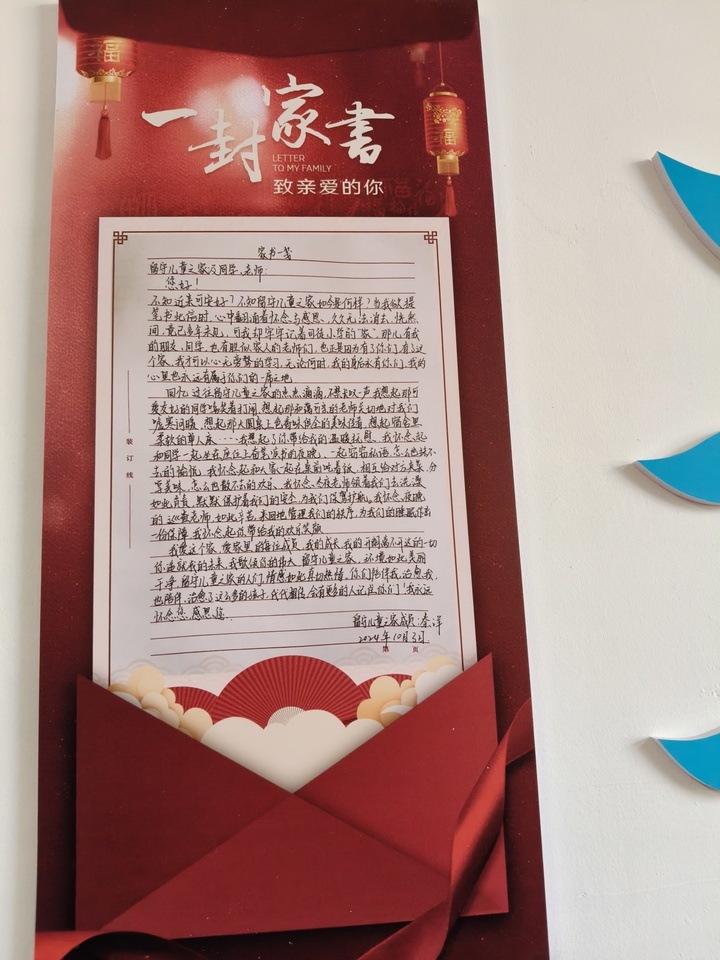 福
福
一封家书
LETTER
TO MY FAMILY
致亲爱的你
家书一笺
留守儿童之家及同学、老师:
您好!
不知近来可安好?不知留守儿童之家如今是何样?当我欲提
笔书此信时,心中翻涌着怀念与感恩,久久无法消去,恍然
间,竟已多年未见,可我却牢牢记着司徒小学的“家”,那儿有我
的朋友、同学,也有胜似家人的老师们,也正是因为有了你们,有了这
个家,我才可以心无旁骛的学习,无论何时,我的身后永有你们,我的
心里也永远有属于你们的一席之地
回忆过往留守儿童之家的点点滴滴,不禁长叹一声,我想起那可
爱友好的同学嘻笑着打闹,想起那和蔼可亲的老师关切地对我们
嘘寒问暖,想起那大圆桌上色香味俱全的美味佳肴,想起宿舍里
柔软的单人床……我想起了你带给我的温暖抚慰,我怀念起
和同学一起坐在座位上奋笔读书的夜晚,一起窃窃私语,怎么也耗不
去的愉悦,我怀念起和大家一起在桌前吃着饭,相互给对方夹菜,分
享美味,怎么也散不去的欢乐,我怀念
如此负责,默默保护着我们的安全,为我们保驾护航,我怀念夜晚
的巡查老师,如此辛苦,来回地管理我们的秩序,为我们的睡眠作出
一份保障,我怀念起你带给我的欢乐笑颜
我爱这个家,爱家里的每位成员,我的成长,我的开朗离不开这的一切
你造就我的未来,我歌颂你的伟大,留守儿童之家,环境如此美丽
干净,留守儿童之家的人们,情感如此真切热情,你们陪伴我,治愈我,
也陪伴、治愈了这么多的孩子,代代相传,会有更多的人记住你们!我永远
怀念您,感恩您.
留守儿童之家成员:秦洋
2024年10月3日
第 页
装订线